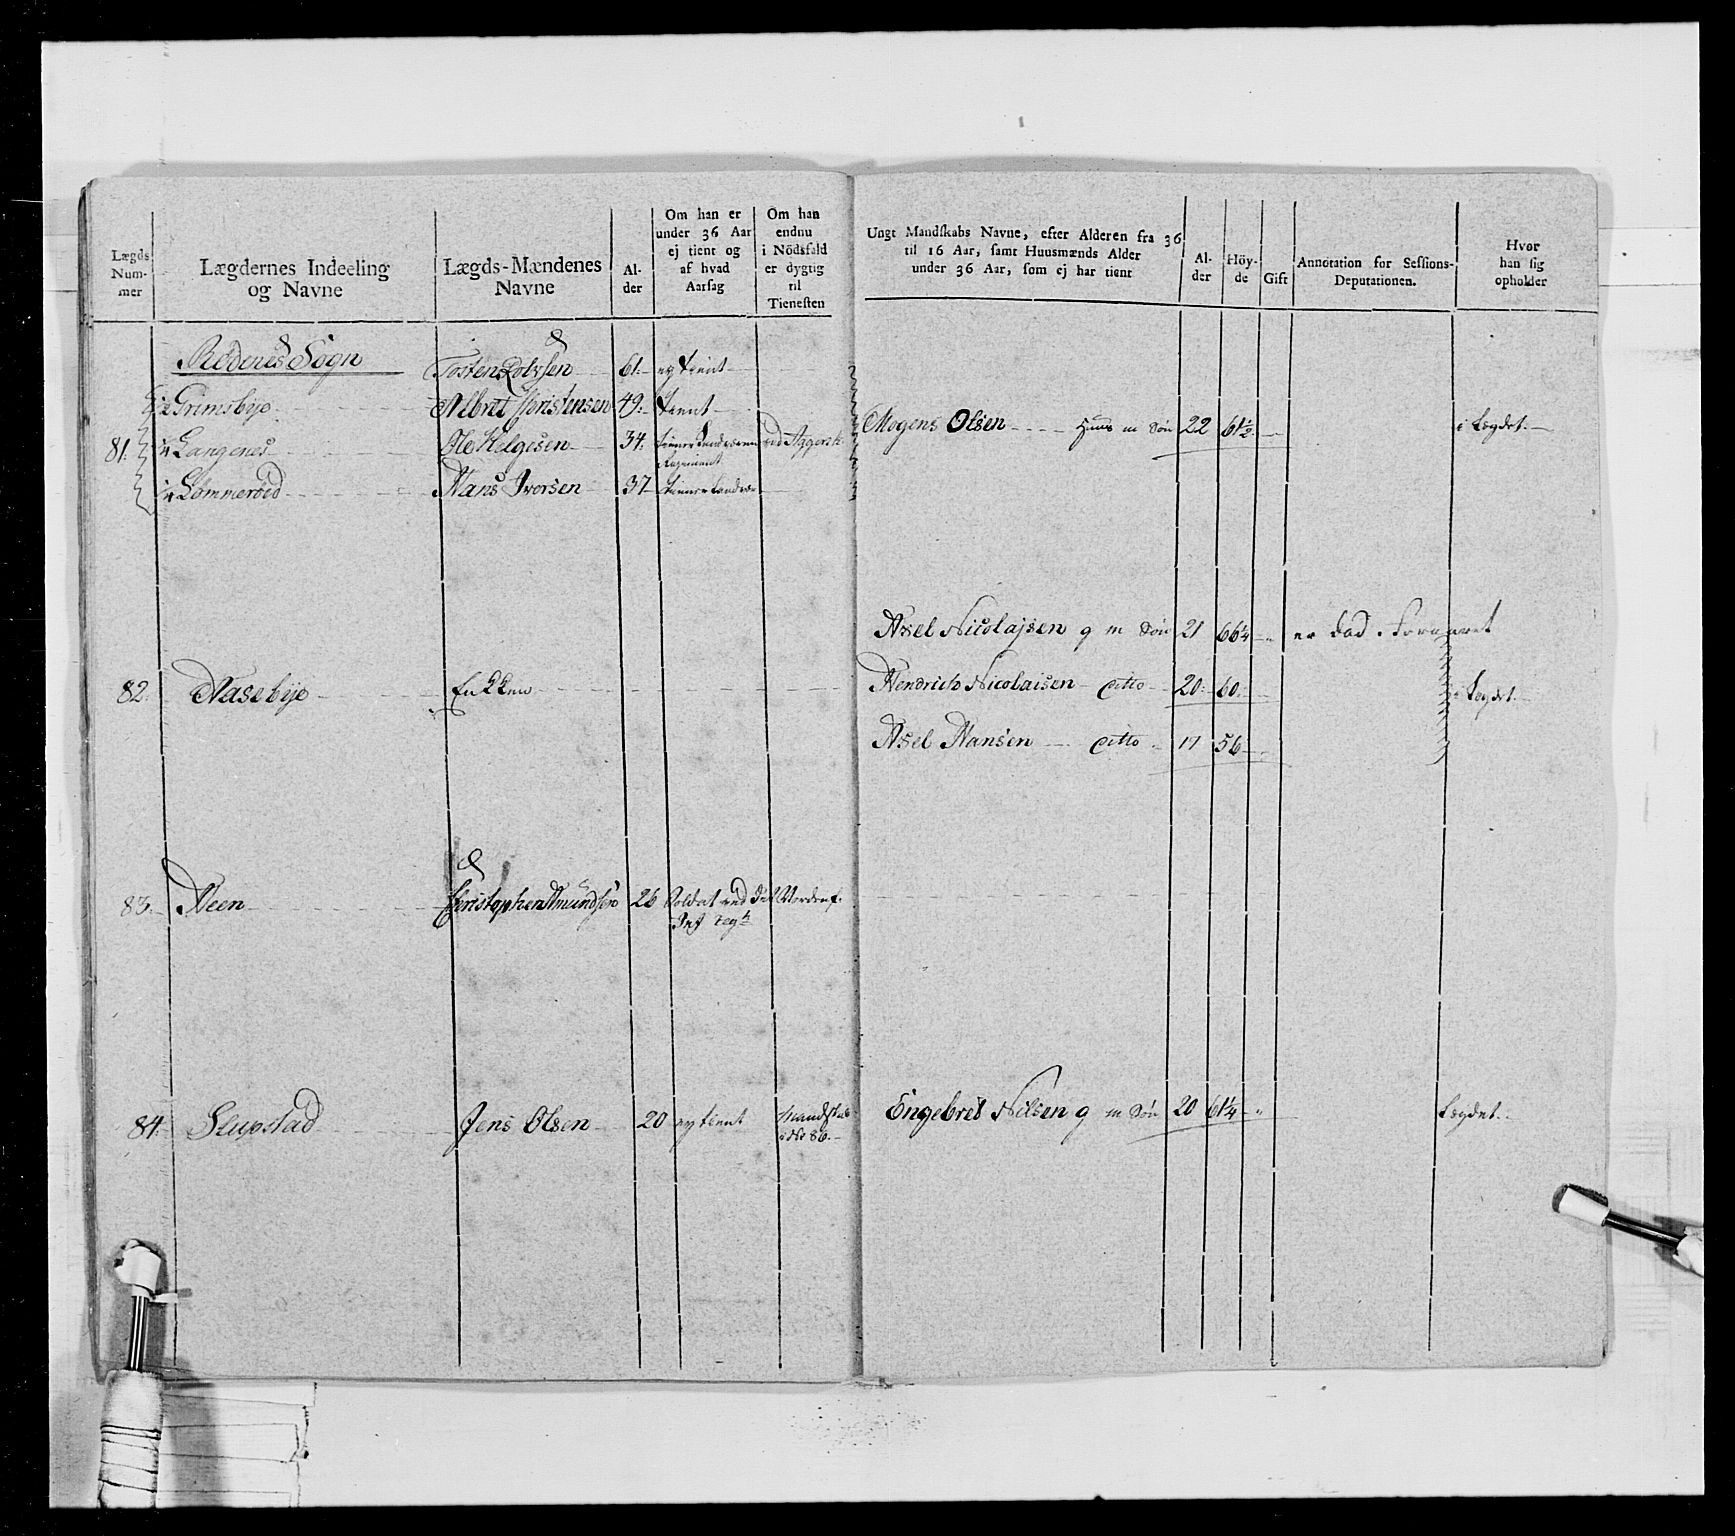 Lægds Num- mer
Lægdernes Indeeling og Navne
Lægds-Mændenes Navne
Al- der
Om han er under 36 Aar ej tient og af hvad Aarsag
Om han endnu i Nödsfald er dygtig til Tienesten
Ungt Mandskabs Navne, efter Alderen fra 36 til 16 Aar, samt Huusmænds Alder under 36 Aar, som ej har tient
Al- der
Höy- de
Gift
Annotation for Sessions- Deputationen.
Hvor han sig opholder
Rödenes Sogn
Tosten Rolvsen 61. ey tient
Grimsbye Albret Christensen 49. tient
81. Langenes Ole Helgesen 34. ved Aggersh.
Regiment
Lömmeröed Hans Iversen 37
Mogens Olsen Huus m Sön 22 61½ i Lægdet
Axel Nicolajsen g m Sön 21 66¼ er död
82. Hasebye Enken
Hendrich Nicolaisen ditto 20. 60. Lægdet
Axel Hansen ditto 17 56
83. Neen Christopher Amundsen 26 Soldat ved det Nordenf.
Inf Regt
84. Slupstad Jens Olsen 20 ey tient Mandskab
i No 86.
Engebret Nilsen g m Sön 20 61¼ Lægdet